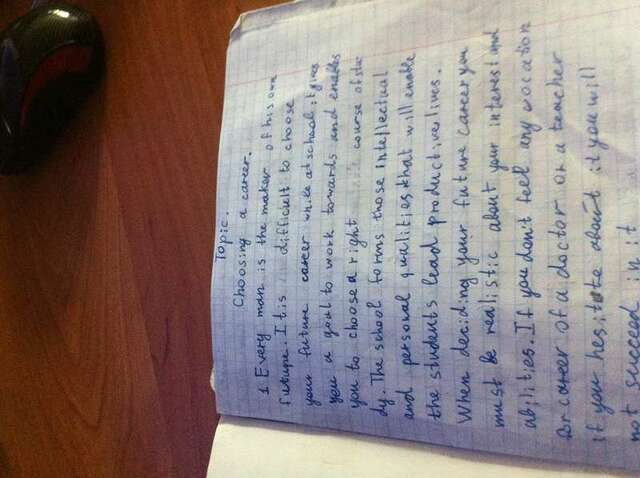 Topic.
Choosing a career.
1 Every man is the maker of his own
future. It is difficult to choose
your future career while at school: it gives
you a goal to work towards and enables
you to choose a right course of stu
dy. The school forms those intellectual
and personal qualities that will enable
the students lead productive lives.
When deciding your future career you
must be realistic about your interest and
abilities. If you don't feel any vocation
for career of a doctor or a teacher
if you hesitate about it you will
not succeed in it